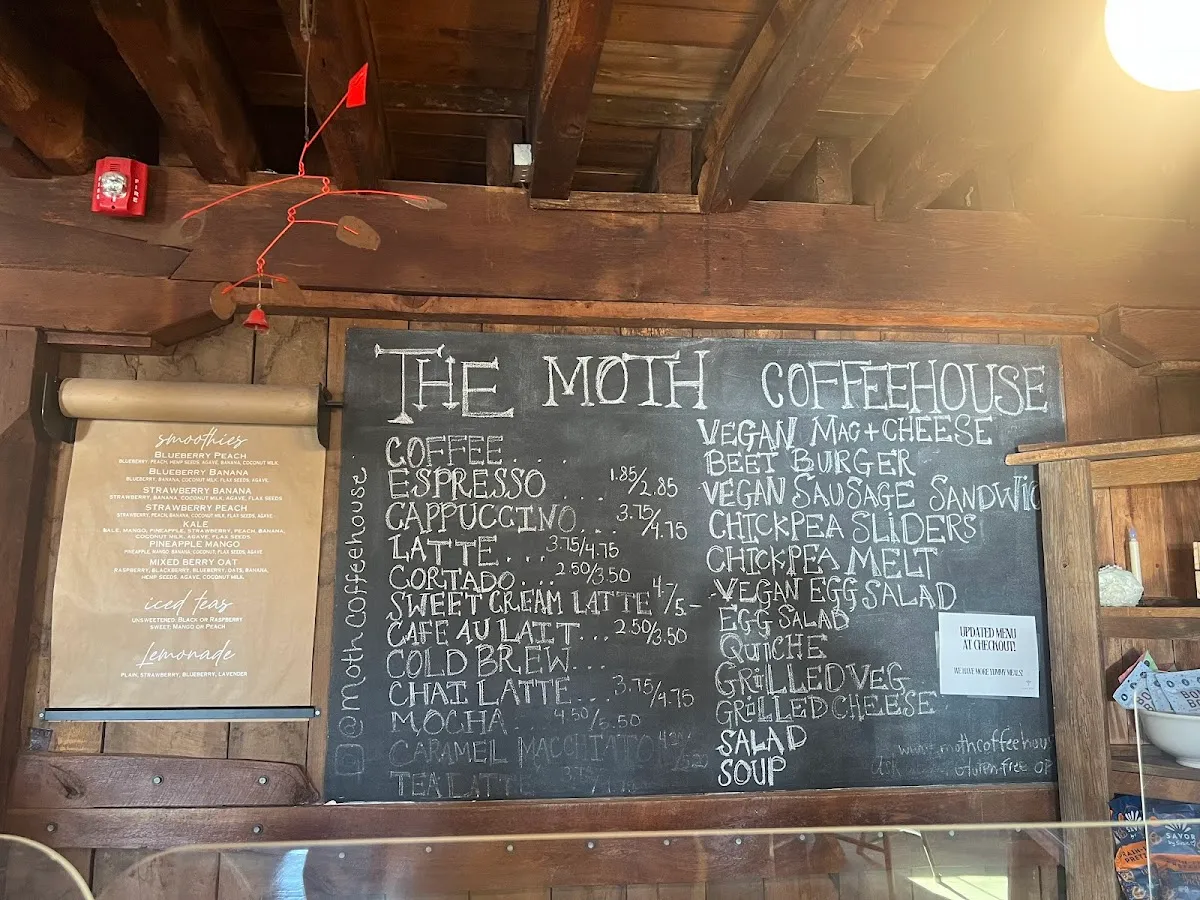 FIRE
FIRE
smoothies
BLUEBERRY PEACH
BLUEBERRY, PEACH, HEMP SEEDS, AGAVE, BANANA, COCONUT MILK
BLUEBERRY BANANA
BLUEBERRY, BANANA, COCONUT MILK, FLAX SEEDS, AGAVE
STRAWBERRY BANANA
STRAWBERRY, BANANA, COCONUT MILK, AGAVE, FLAX SEEDS
STRAWBERRY PEACH
STRAWBERRY, PEACH, BANANA, COCONUT MILK, FLAX SEEDS, AGAVE
KALE
KALE, MANGO, PINEAPPLE, STRAWBERRY, PEACH, BANANA,
COCONUT MILK, AGAVE, FLAX SEEDS
PINEAPPLE MANGO
PINEAPPLE, MANGO, BANANA, COCONUT, FLAX SEEDS, AGAVE
MIXED BERRY OAT
RASPBERRY, BLACKBERRY, BLUEBERRY, OATS, BANANA,
HEMP SEEDS, AGAVE, COCONUT MILK
iced teas
UNSWEETENED: BLACK OR RASPBERRY
SWEET: MANGO OR PEACH
Lemonade
PLAIN, STRAWBERRY, BLUEBERRY, LAVENDER
@mothcoffeehouse
THE MOTH COFFEEHOUSE
COFFEE....
ESPRESSO ... 1.85/2.85
CAPPUCCINO... 3.75/4.75
LATTE... 3.75/4.75
CORTADO... 2.50/3.50
SWEET CREAM LATTE 4-/5-
CAFE AU LAIT... 2.50/3.50
COLD BREW...
CHAI LATTE... 3.75/4.75
MOCHA 4.50/5.50
CARAMEL MACCHIATO
TEA LATTE
VEGAN MAC+CHEESE
BEET BURGER
VEGAN SAUSAGE SANDWIC
CHICKPEA SLIDERS
CHICKPEA MELT
VEGAN EGG SALAD
EGG SALAD
QUICHE
GRILLED VEG
GRILLED CHEESE
SALAD
SOUP
UPDATED MENU
AT CHECKOUT!
WE HAVE MORE YUMMY MEALS!
www.mothcoffeehous
Ask Gluten-free op
SAVOR